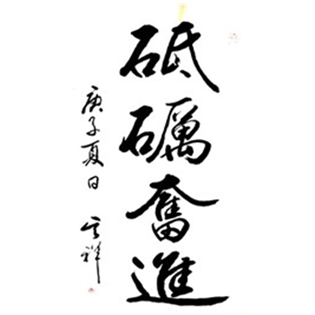 砥礪奮進
庚子夏日